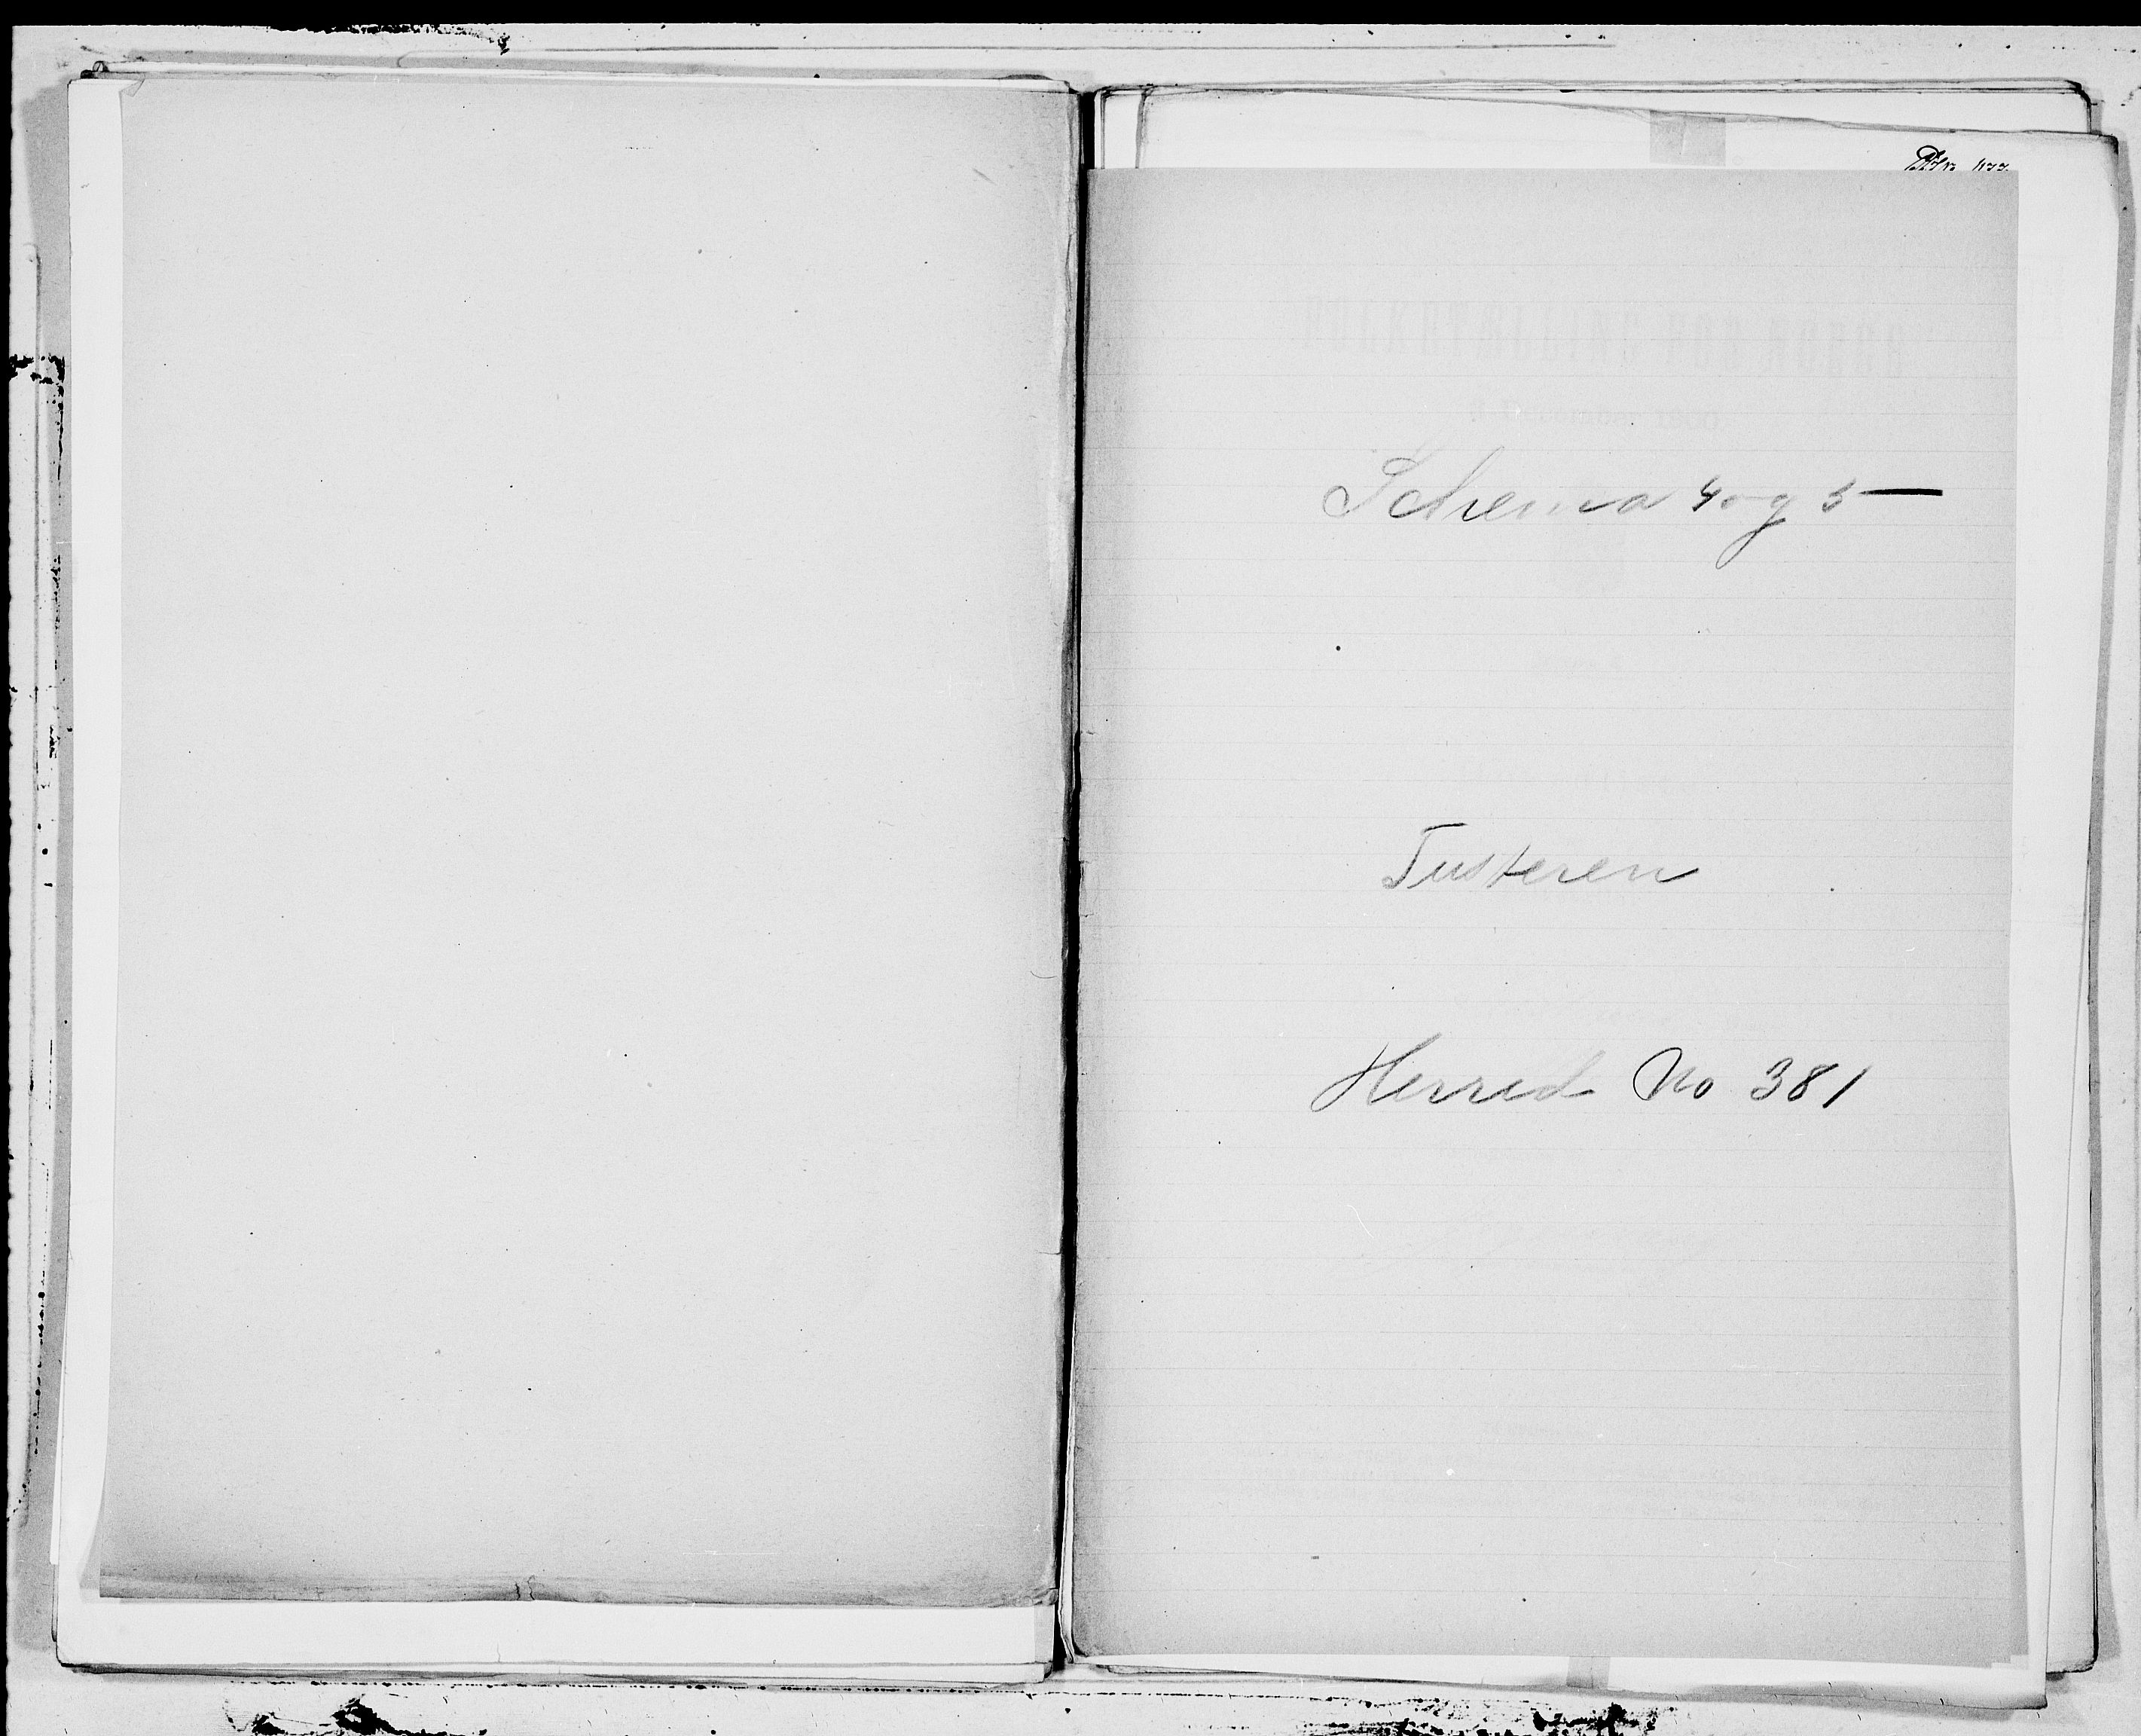 FOLKETÆLLING FOR NORGE
December 1900
Schema 4 og 5
Tusteren
Herred No 381